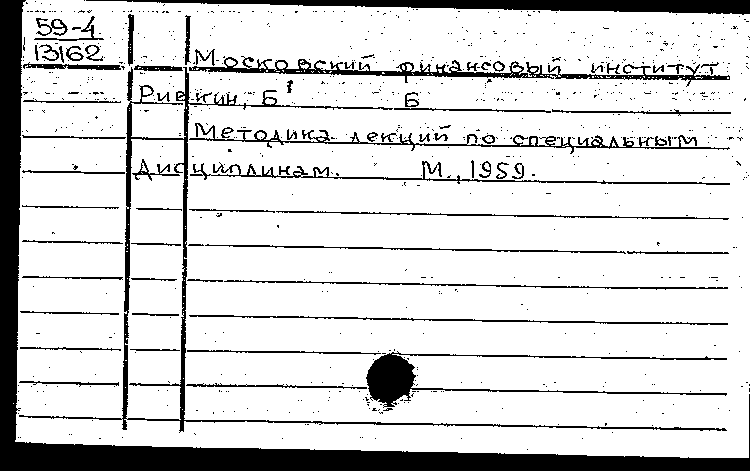 59-4
13162
Московский финансовый институт
Ривкин, Б Б
Методика лекций по специальным
дисциплинам. М., 1959.